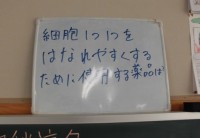 細胞1つ1つを
はなれやすくする
ために使用する薬品は